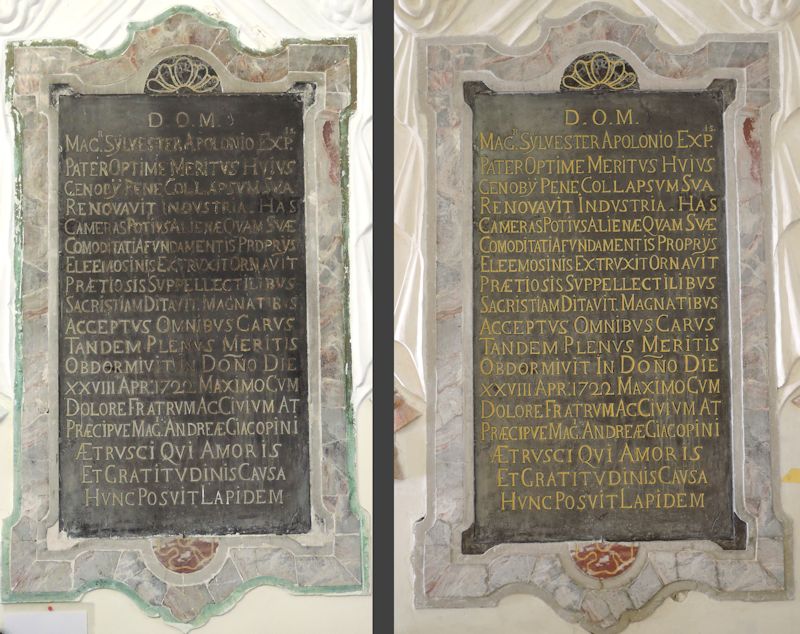 D.O.M.
MAG.R SYLVESTER APOLONIO EXP.IS
PATER OPTIME MERITVS HVIVS
CENOBŸ PENE COLLAPSVM SVA
RENOVAVIT INDVSTRIA. HAS
CAMERAS POTIVS ALIENÆ QVAM SVÆ
COMODITATI A FVNDAMENTIS PROPRYS
ELEEMOSINIS EXTRVXIT ORNAVIT
PRÆTIOSIS SVPPELLECTILIBVS
SACRISTIAM DITAVIT. MAGNATIBVS
ACCEPTVS OMNIBVS CARVS
TANDEM PLENVS MERITIS
OBDORMIVIT IN DOÑO DIE
XXVIII APR. 1722 MAXIMO CVM
DOLORE FRATRVM AC CIVIVM AT
PRÆCIPVE MAG.R ANDREÆ GIACOPINI
ÆTRVSCI QVI AMORIS
ET GRATITVDINIS CAVSA
HVNC POSVIT LAPIDEM
D.O.M.
MAG.R SYLVESTER APOLONIO EXP.IS
PATER OPTIME MERITVS HVIVS
CENOBŸ PENE COLLAPSVM SVA
RENOVAVIT INDVSTRIA. HAS
CAMERAS POTIVS ALIENÆ QVAM SVÆ
COMODITATI A FVNDAMENTIS PROPRYS
ELEEMOSINIS EXTRVXIT ORNAVIT
PRÆTIOSIS SVPPELLECTILIBVS
SACRISTIAM DITAVIT. MAGNATIBVS
ACCEPTVS OMNIBVS CARVS
TANDEM PLENVS MERITIS
OBDORMIVIT IN DOÑO DIE
XXVIII APR. 1722 MAXIMO CVM
DOLORE FRATRVM AC CIVIVM AT
PRÆCIPVE MAG.R ANDREÆ GIACOPINI
ÆTRVSCI QVI AMORIS
ET GRATITVDINIS CAVSA
HVNC POSVIT LAPIDEM